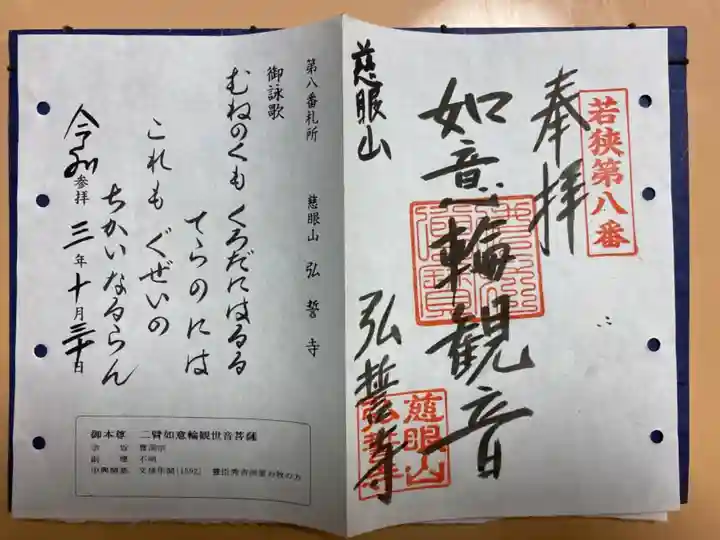 若狭第八番
奉拝
如意輪観音
慈眼山 弘誓寺
慈眼山
弘誓寺
第八番札所 慈眼山 弘誓寺
御詠歌
むねのくも くろだにはるる
てらのには
これも ぐぜいの
ちかいなるらん
令和 参拝 三年十月三十日
御本尊 二臂如意輪観世音菩薩
宗派 曹洞宗
創建 不明